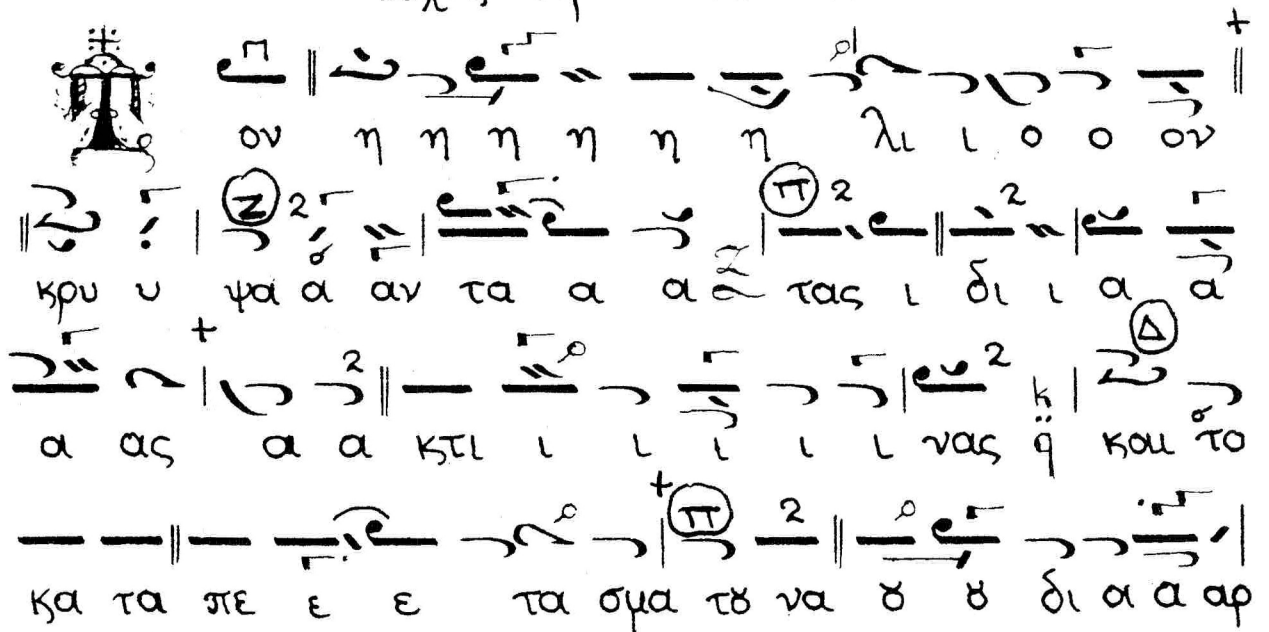 Τ ον η η η η η η λι ι ο ο ον
κρυ υ ψα α αν τα α α τας ι δι ι α α
α ας α α κτι ι ι ι ι ι νας και το
κα τα πε ε ε τα σμα τȣ να ȣ ȣ δι α α αρ